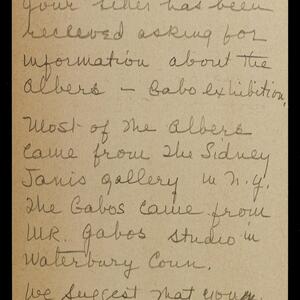 your letter has been
received asking for
information about the
Albers – Gabo exhibition.
Most of the Albers
came from the Sidney
Janis gallery in N.Y.
The Gabos came from
MR. Gabos studio in
Waterbury Conn.
We suggest that you